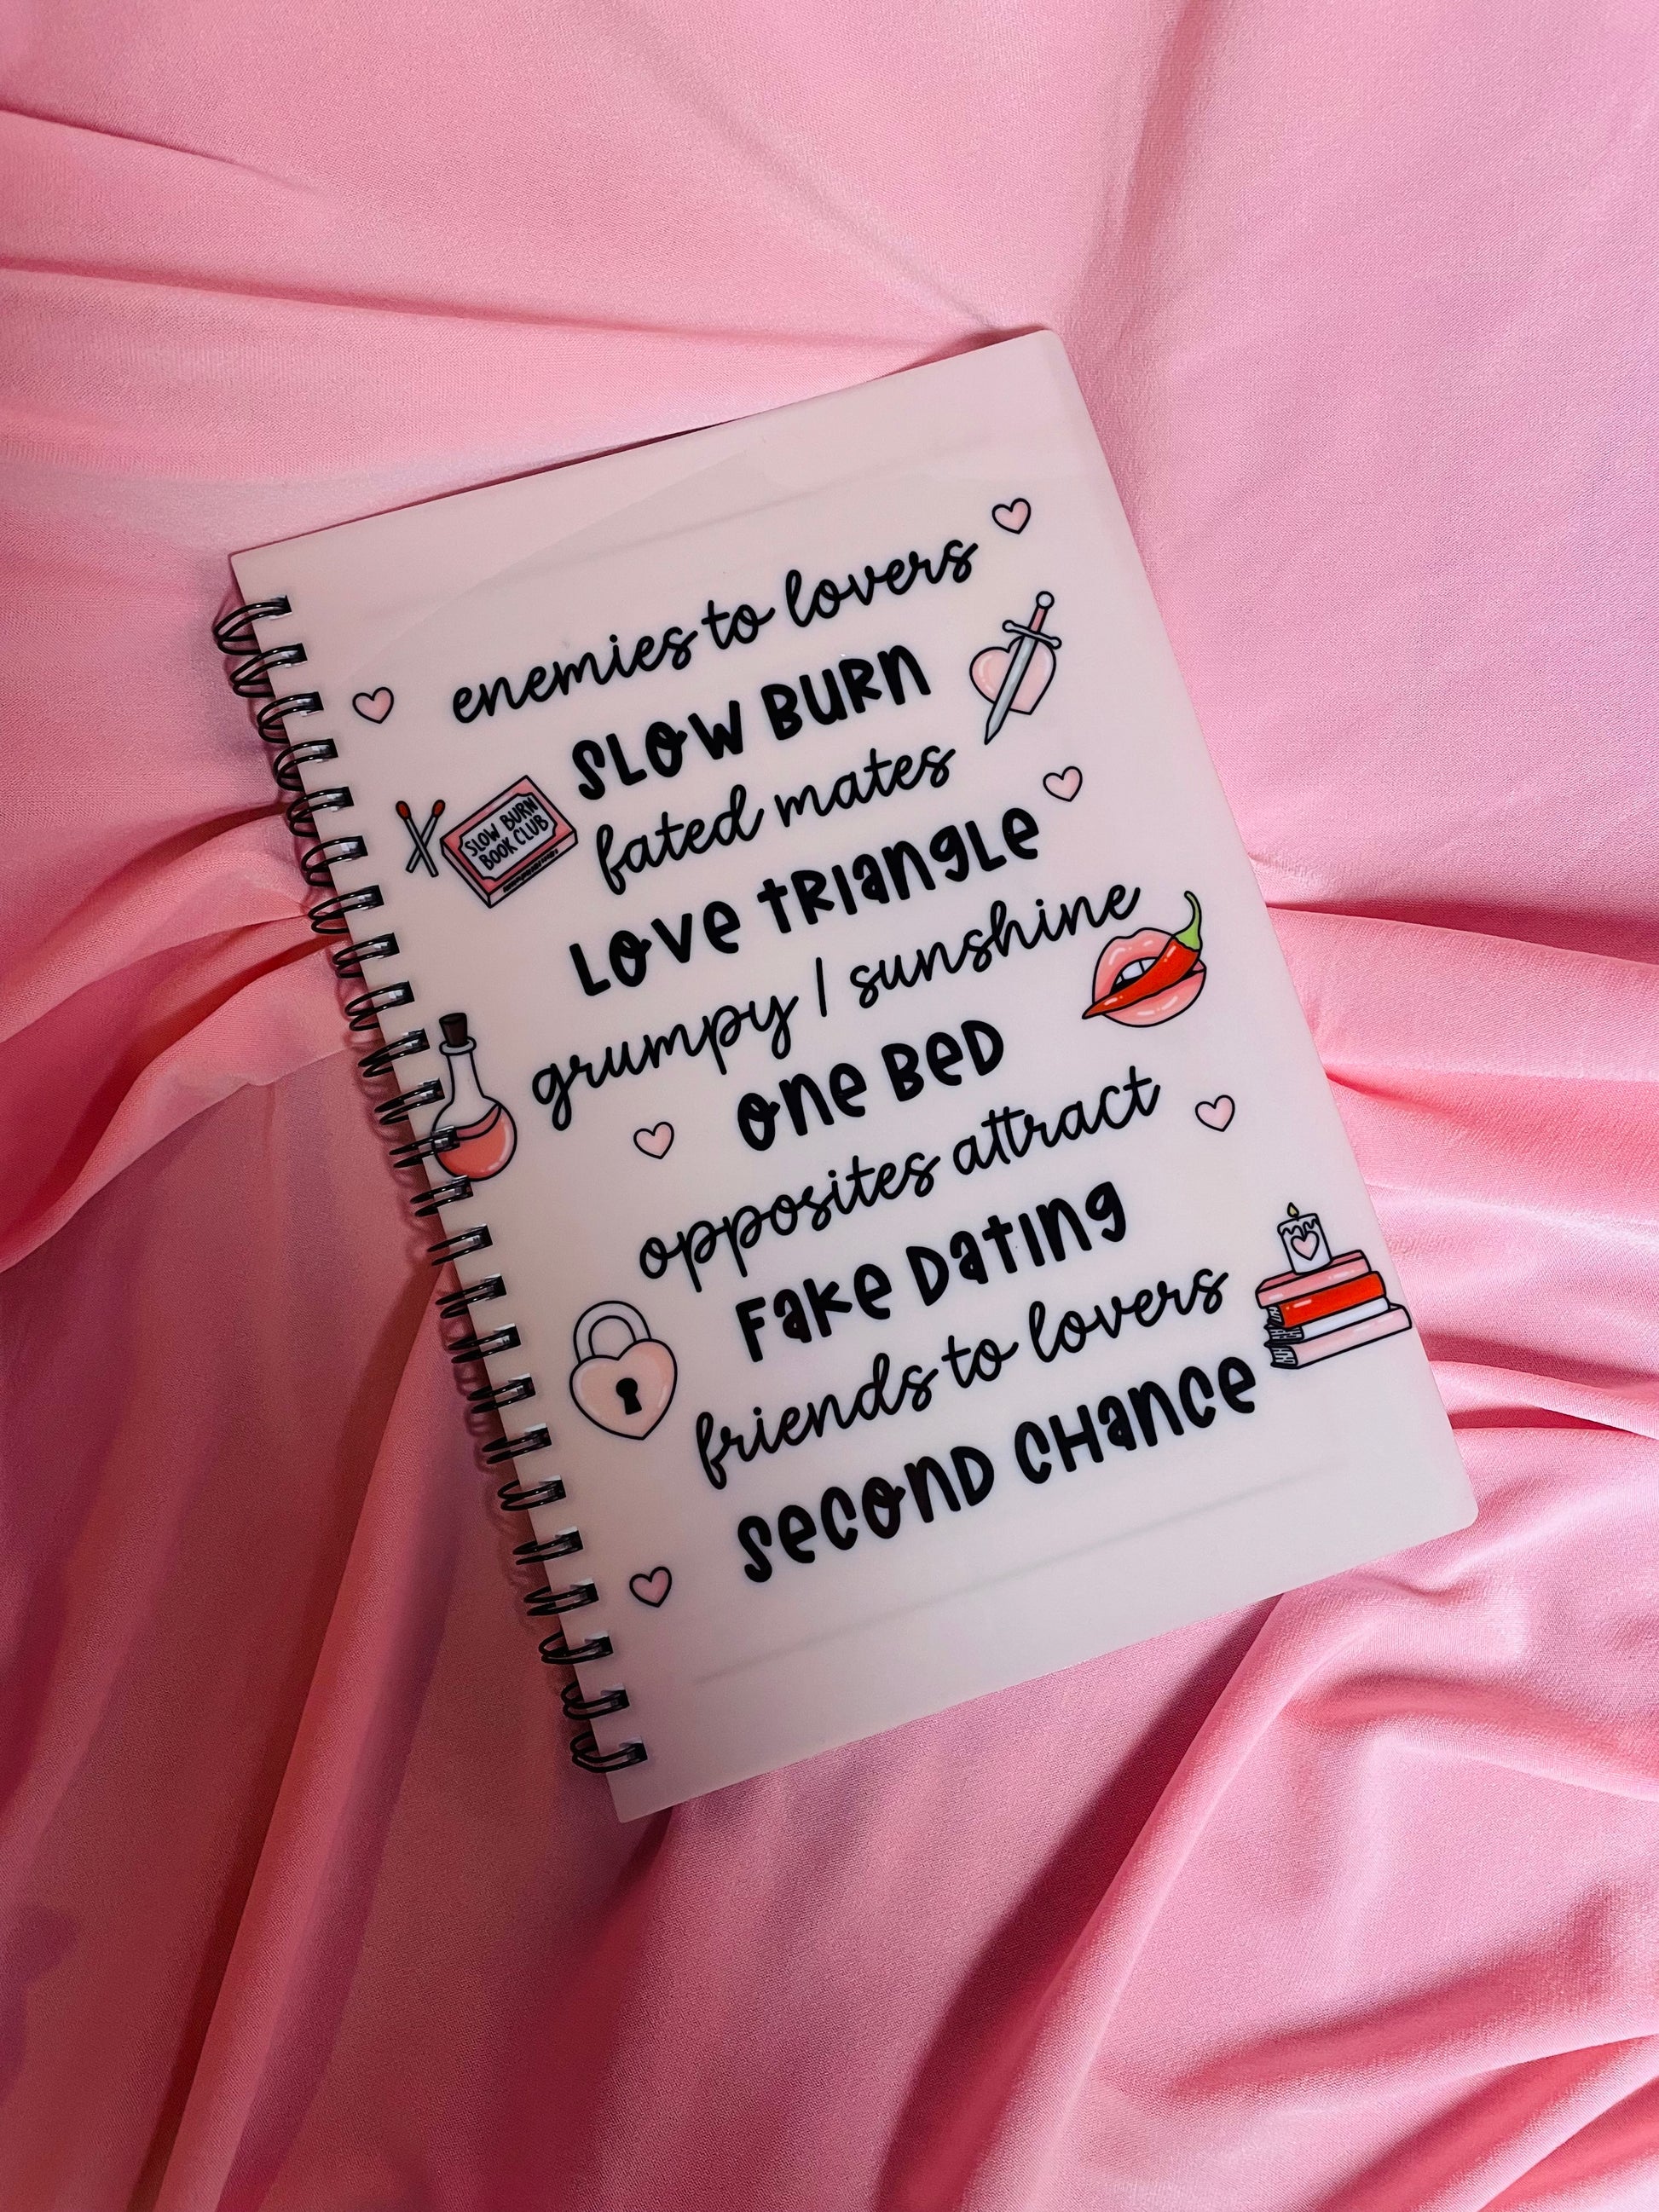 enemies to lovers
SLOW BURN
fated mates
SLOW BURN
BOOK CLUB
LOVE TRIANGLE
grumpy / sunshine
ONE BED
opposites attract
FAKE DATING
friends to lovers
SECOND CHANCE